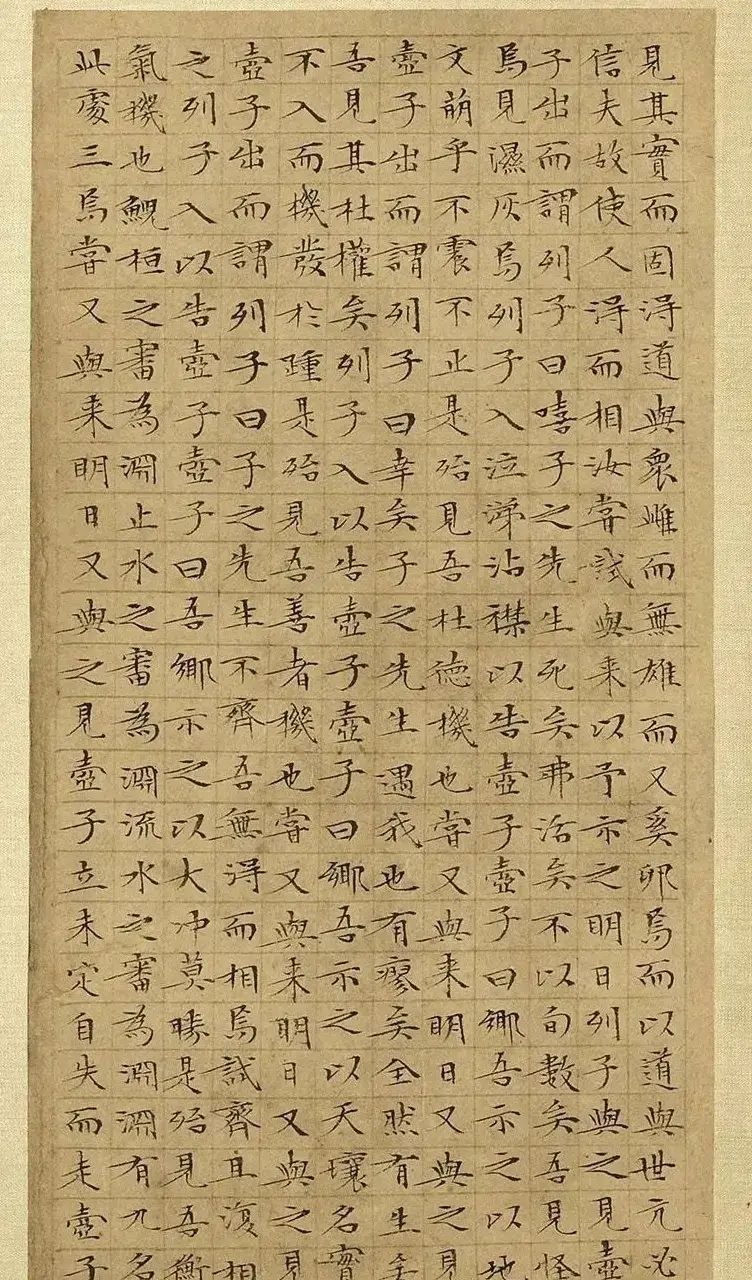 見其實而固淂道與衆雌而無雄而又奚卵焉而以道與世亢必
信夫故使人淂而相汝嘗試與来以予示之明日列子與之見壺
子出而謂列子曰嘻子之先生死矣弗活矣不以旬數矣吾見怪
焉見濕灰焉列子入泣涕沾襟以告壺子壺子曰鄉吾示之以地
文萌乎不震不止是殆見吾杜德機也嘗又與来明日又與之見
壺子出而謂列子曰幸矣子之先生遇我也有瘳矣全然有生矣
吾見其杜權矣列子入以告壺子壺子曰鄉吾示之以天壤名實
不入而機發於踵是殆見吾善者機也嘗又與来明日又與之見
壺子出而謂列子曰子之先生不齊吾無淂而相焉試齊且復相
之列子入以告壺子壺子曰吾鄉示之以大冲莫勝是殆見吾衡
氣機也鯢桓之審為淵止水之審為淵流水之審為淵淵有九名
此處三焉嘗又與来明日又與之見壺子立未定自失而走壺子